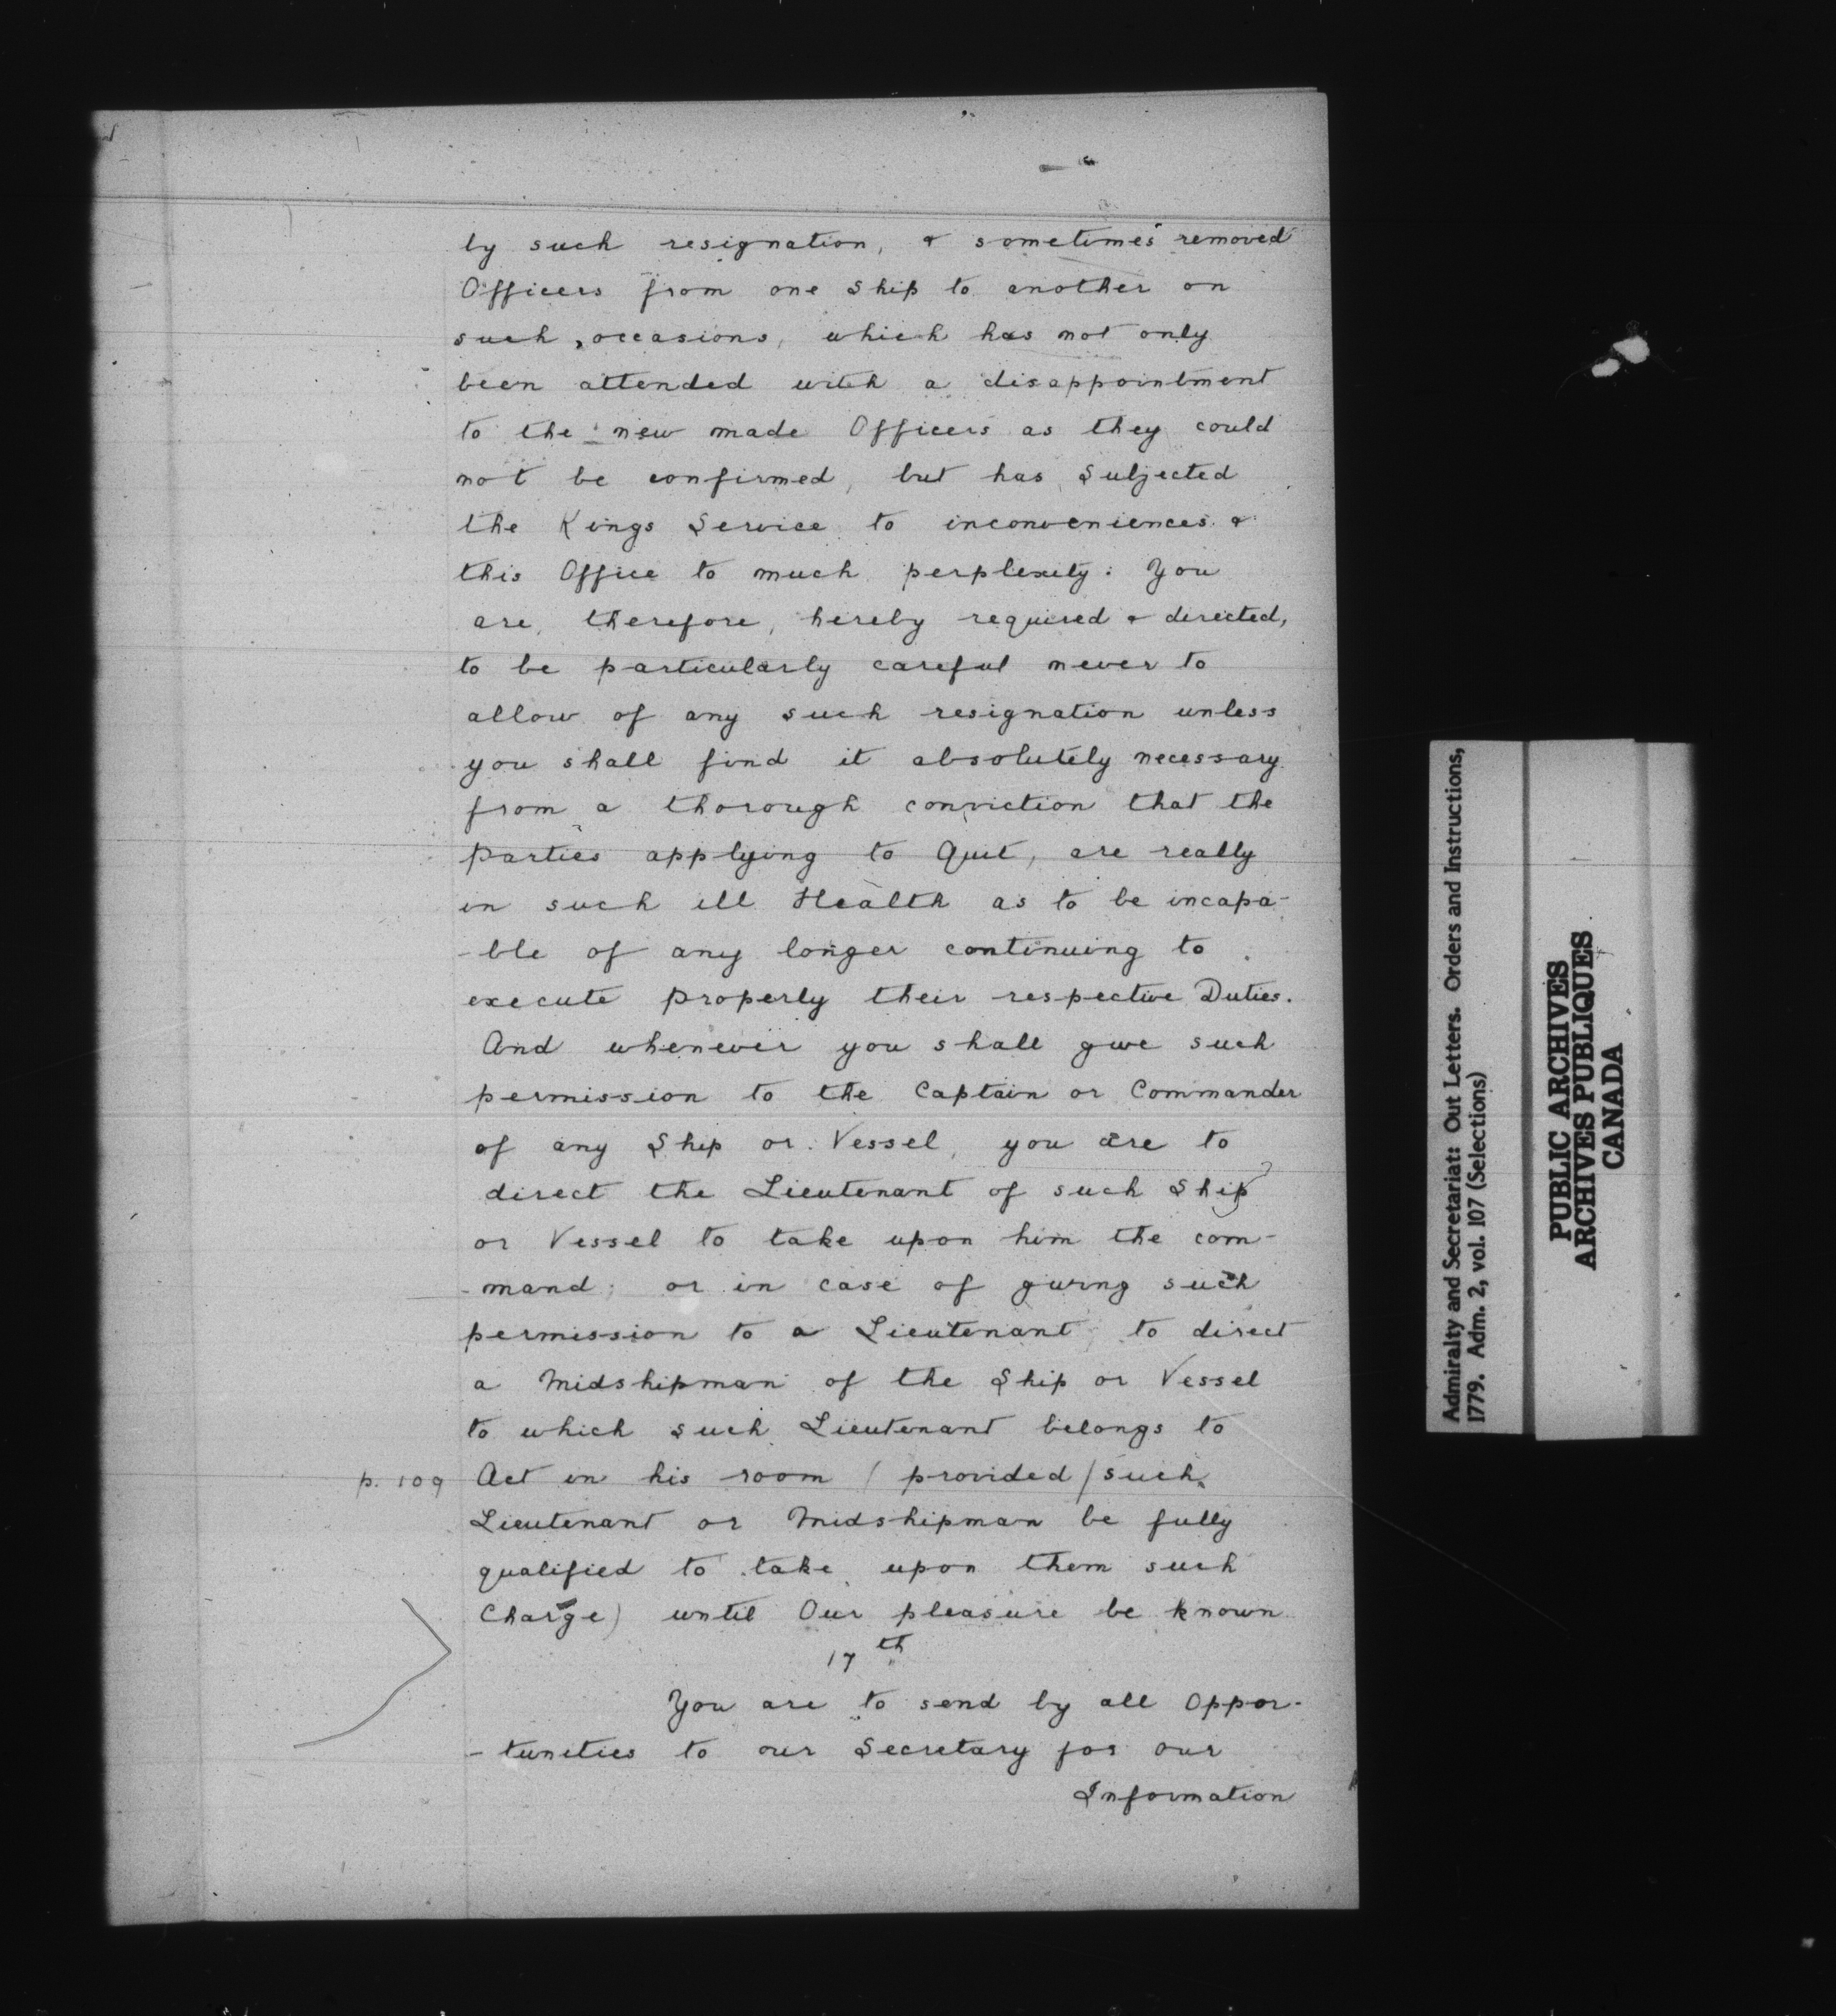 by such resignation, & sometimes removed
Officers from one Ship to another on
such occasions, which has not only
been attended with a disappointment
to the new made Officers as they could
not be confirmed, but has Subjected
the Kings Service to inconveniences &
this Office to much perplexity: You
are, therefore, hereby required & directed,
to be particularly careful never to
allow of any such resignation unless
you shall find it absolutely necessary
from a thorough conviction that the
parties applying to Quit, are really
in such ill Health as to be incapa-
-ble of any longer continuing to
execute properly their respective Duties.
And whenever you shall give such
permission to the Captain or Commander
of any Ship or Vessel, you are to
direct the Lieutenant of such Ship
or Vessel to take upon him the com-
-mand; or in case of giving such
permission to a Lieutenant, to direct
a Midshipman of the Ship or Vessel
to which such Lieutenant belongs to
p. 109 Act in his room ( provided / such
Lieutenant or Midshipman be fully
qualified to take upon them such
Charge) until Our pleasure be known
17th
You are to send by all Oppor-
-tunities to our Secretary for our
Information
Admiralty and Secretariat: Out Letters. Orders and Instructions,
1779. Adm. 2, vol. 107 (Selections)
PUBLIC ARCHIVES
ARCHIVES PUBLIQUES
CANADA